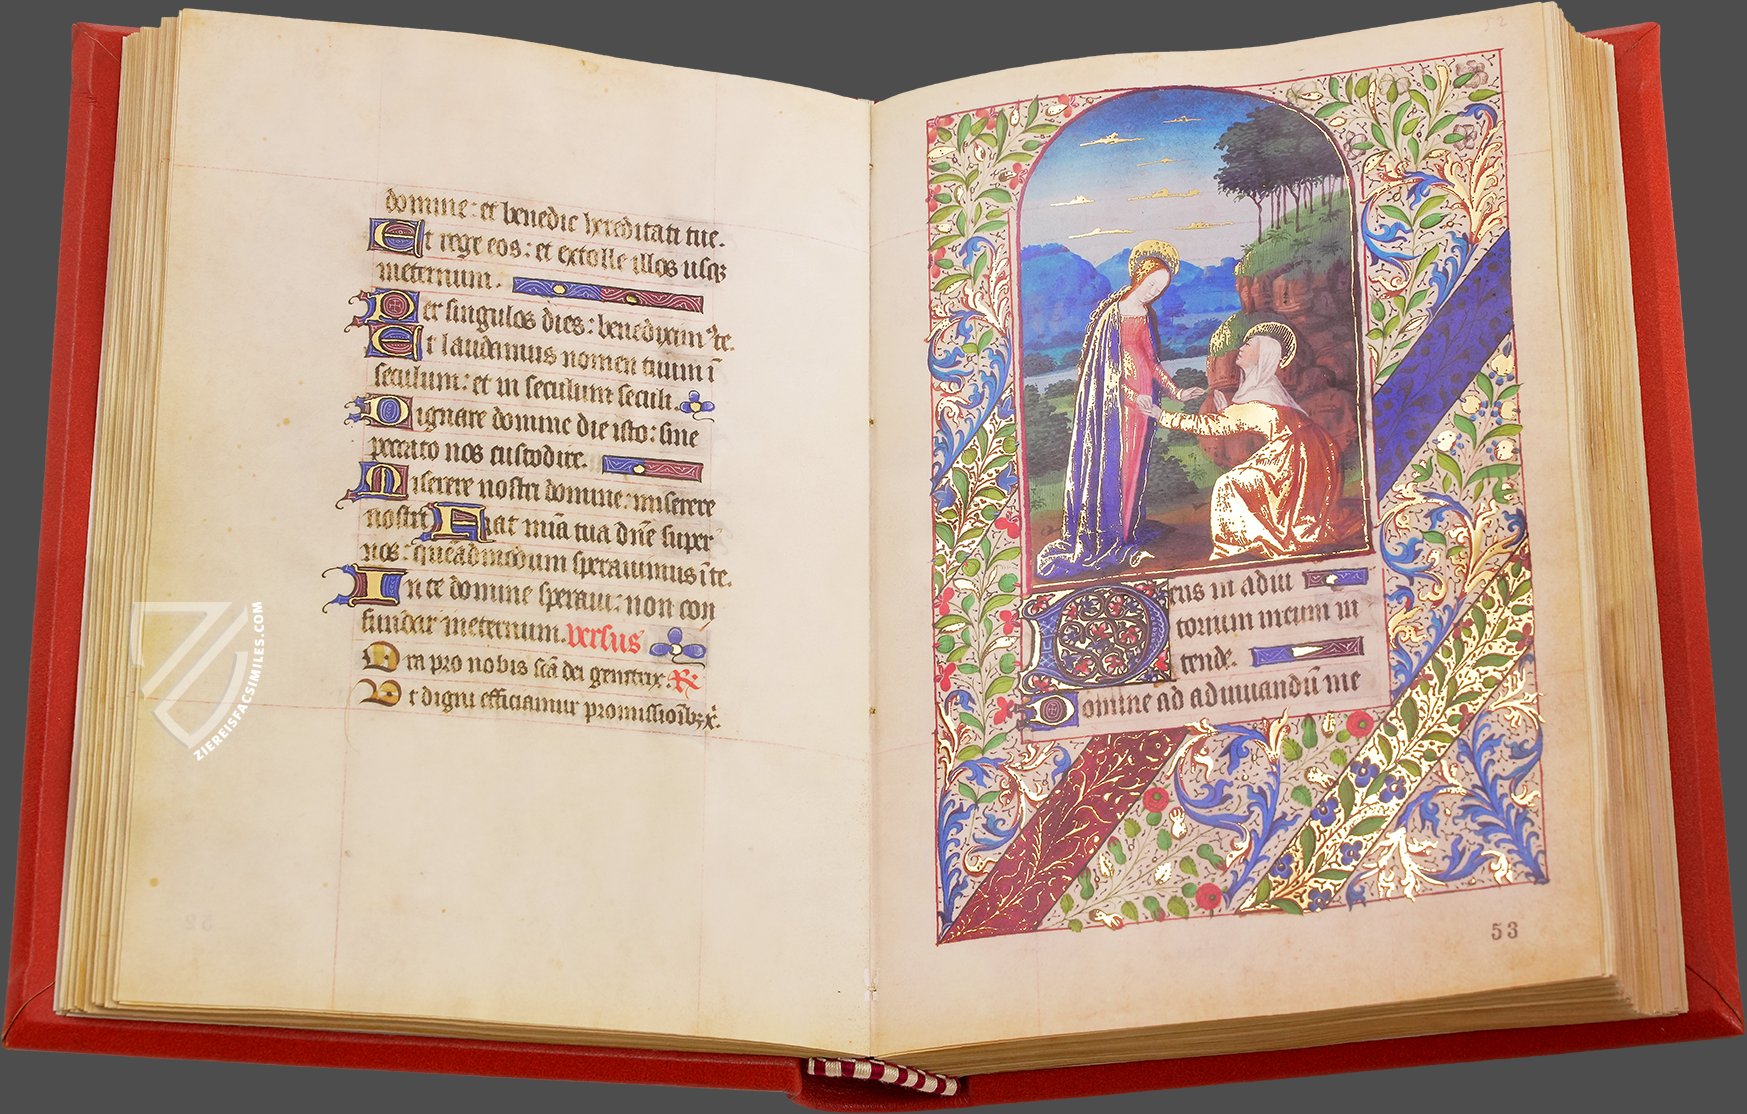 domine: et benedic hereditati tue.
Et rege eos: et extolle illos usqz
ineternum.
Per singulos dies: benedicim9 te.
Et laudamus nomen tuum ī
seculum: et in seculum seculi.
Dignare domine die isto: sine
peccato nos custodire.
Miserere nostri domine: miserere
nostri Fiat mīa tua dn̄e super
nos: quēadmodum sperauimus ī te.
In te domine speraui: non con
fundar ineternum. versus
Ora pro nobis scā dei genitrix. R
Ut digni efficiamur promissioībz x̄.
52
Deus in adiu
torium meum in
tende.
Domine ad adiuuandū me
53
ZIEREISFACSIMILES.COM